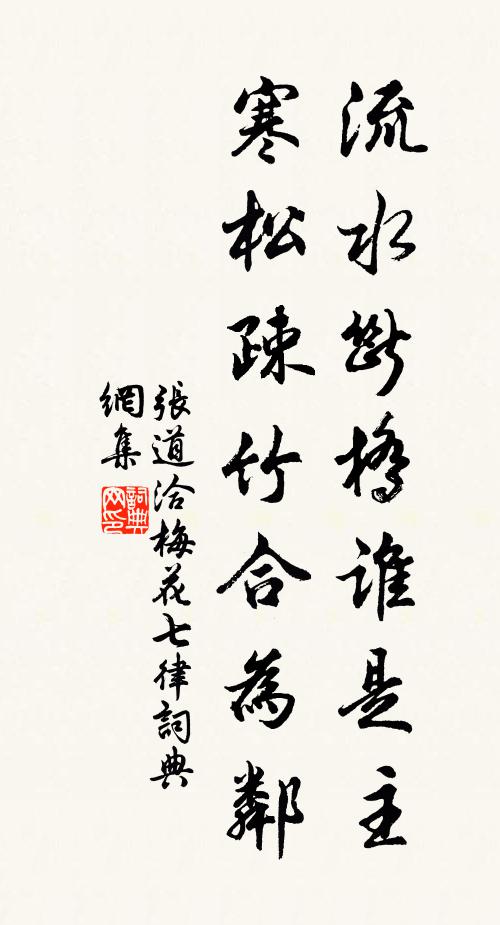 流水斷橋誰是主
寒松疎竹合為鄰
張道洽梅花七律詞典
網集
詞典
网印